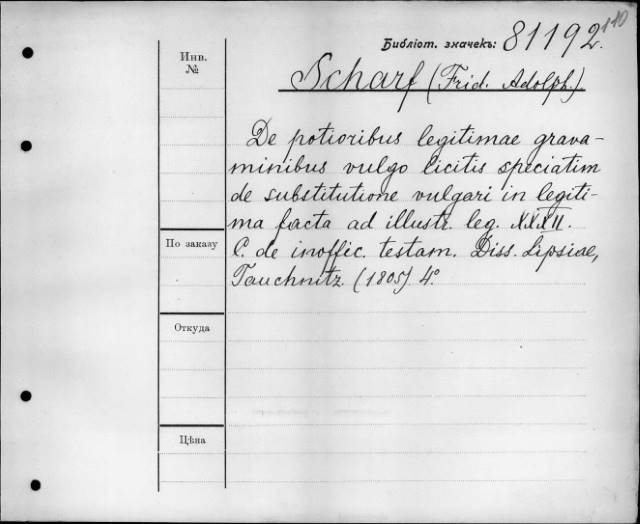 110
Библіот. значекъ: 81192.
Инв.
№
Scharf (Frid. Adolph.)
De potioribus legitimae grava-
minibus vulgo licitis speciatim
de substitutione vulgari in legiti-
ma facta ad illustr. leg. XXXII.
C. de inoffic. testam. Diss. Lipsiae,
Tauchnitz. (1805) 4°.
По заказу
Откуда
Цѣна